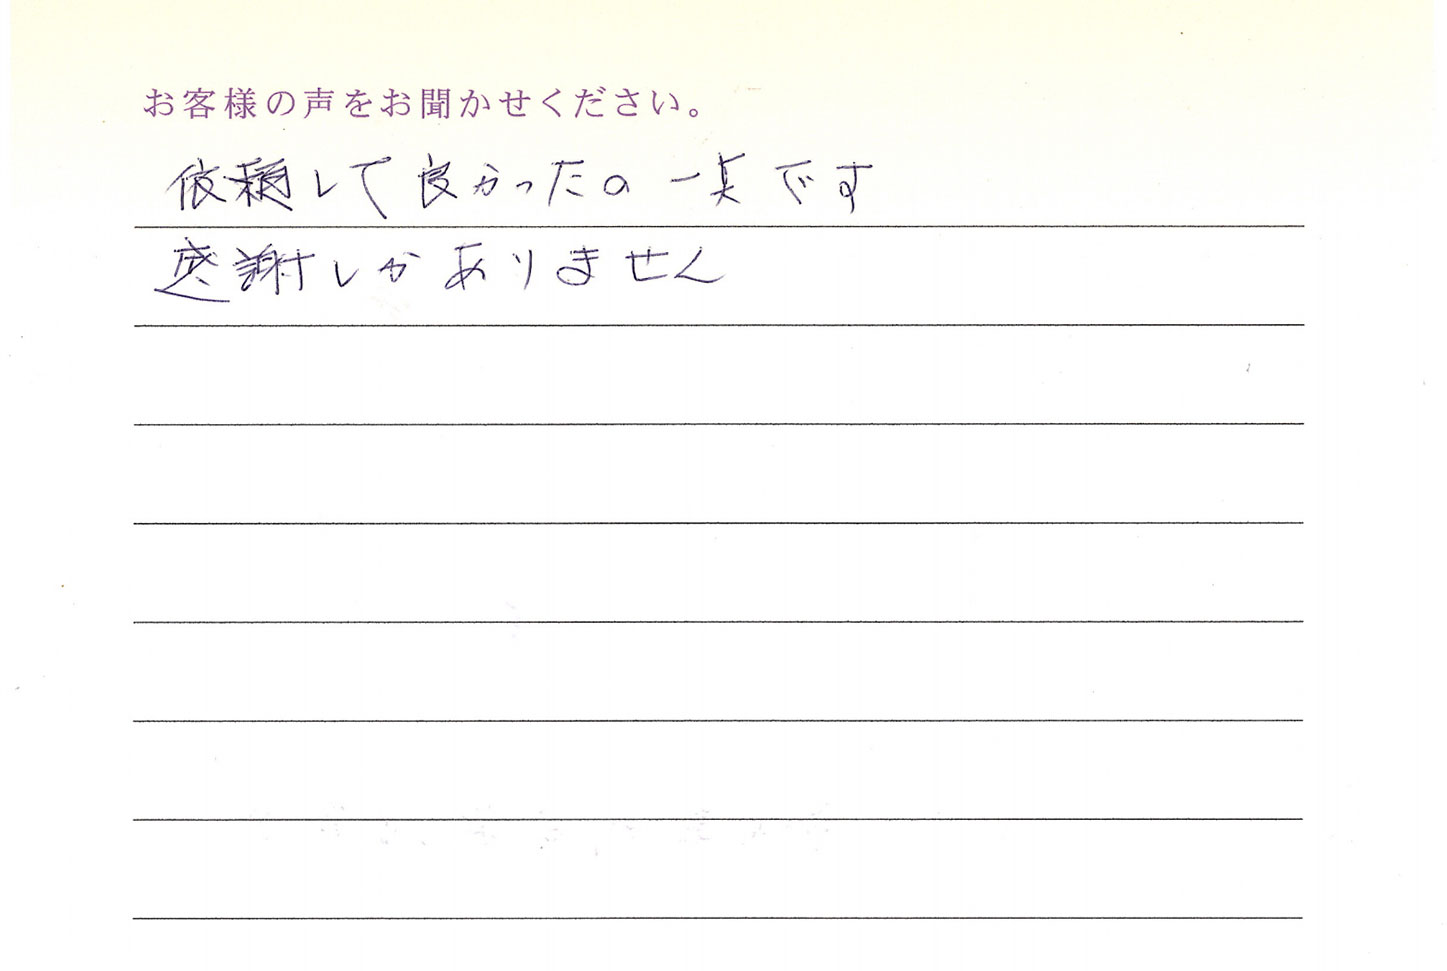 お客様の声をお聞かせください。
依頼して良かったの一点です
感謝しかありません